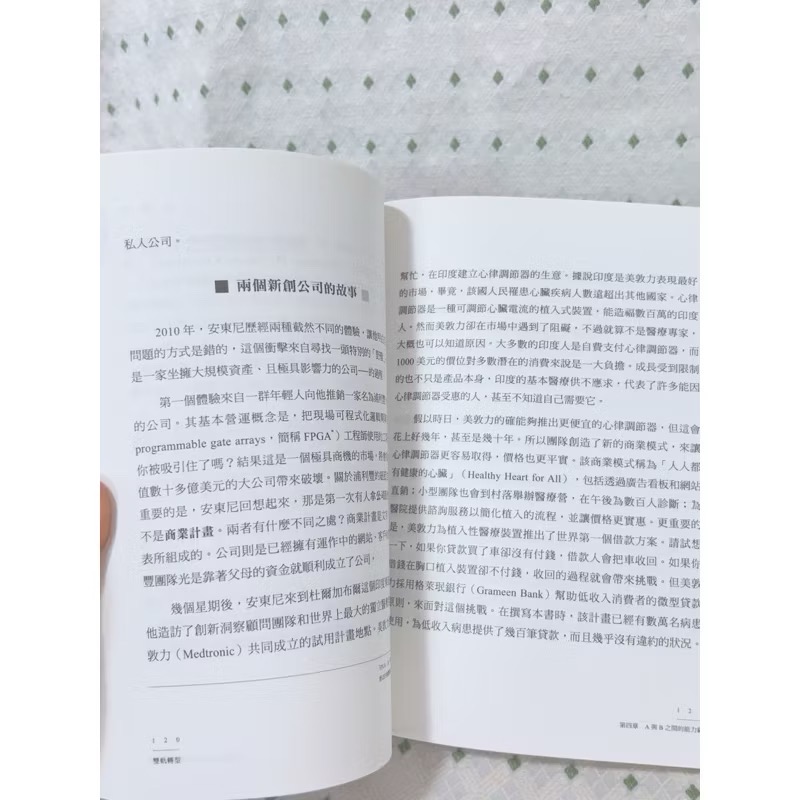 私人公司。
■ 兩個新創公司的故事 ■
2010 年，安東尼歷經兩種截然不同的體驗，讓他
問題的方式是錯的，這個衝擊來自尋找一頭特別的「
是一家坐擁大規模資產、且極具影響力的公司—的過程
第一個體驗來自一群年輕人向他推銷一家名為
的公司。其基本營運概念是，把現場可程式化邏輯
programmable gate arrays，簡稱 FPGA*）工程師使用
你被吸引住了嗎？結果這是一個極具商機的市場，
值數十多億美元的大公司帶來破壞。關於浦利豐的
重要的是，安東尼回想起來，那是第一次有人拿
不是商業計畫。兩者有什麼不同之處？商業計畫是
表所組成的。公司則是已經擁有運作中的網站、客戶
豐團隊光是靠著父母的資金就順利成立了公司，
幾個星期後，安東尼來到杜爾加布爾這個印度
他造訪了創新洞察顧問團隊和世界上最大的獨立
敦力（Medtronic）共同成立的試用計畫地點。美
120
雙軌轉型
幫忙，在印度建立心律調節器的生意。據說印度是美敦力表現最好
的市場，畢竟，該國人民罹患心臟疾病人數遠超出其他國家。心律
調節器是一種可調節心臟電流的植入式裝置，能造福數百萬的印度
人，然而美敦力卻在市場中遇到了阻礙，不過就算不是醫療專家，
大概也可以知道原因。大多數的印度人是自費支付心律調節器，而
1000 美元的價位對多數潛在的消費來說是一大負擔。成長受到限制
的也不只是產品本身，印度的基本醫療供不應求，代表了許多能因
心律調節器受惠的人，甚至不知道自己需要它。
假以時日，美敦力的確能夠推出更便宜的心律調節器，但這會
花上好幾年，甚至是幾十年。所以團隊創造了新的商業模式，來讓
心律調節器更容易取得，價格也更平實。該商業模式稱為「人人都
有健康的心臟」（Healthy Heart for All），包括透過廣告看板和網站
直銷；小型團隊也會到村落舉辦醫療營，在午後為數百人診斷；為
醫院提供諮詢服務以簡化植入的流程，並讓價格更實惠。更重要的
是，美敦力為植入性醫療裝置推出了世界第一個借款方案。請試想
一下，如果你貸款買了車卻沒有付錢，借款人會把車收回。如果你
借錢在胸口植入裝置卻不付錢，收回的過程就會帶來挑戰。但美敦
力採用格萊珉銀行（Grameen Bank）幫助低收入消費者的微型貸款
原則，來面對這個挑戰。在撰寫本書時，該計畫已經有數萬名病患
使用，為低收入病患提供了幾百筆貸款，而且幾乎沒有違約的狀況。
12
第四章 A 與 B 之間的能力